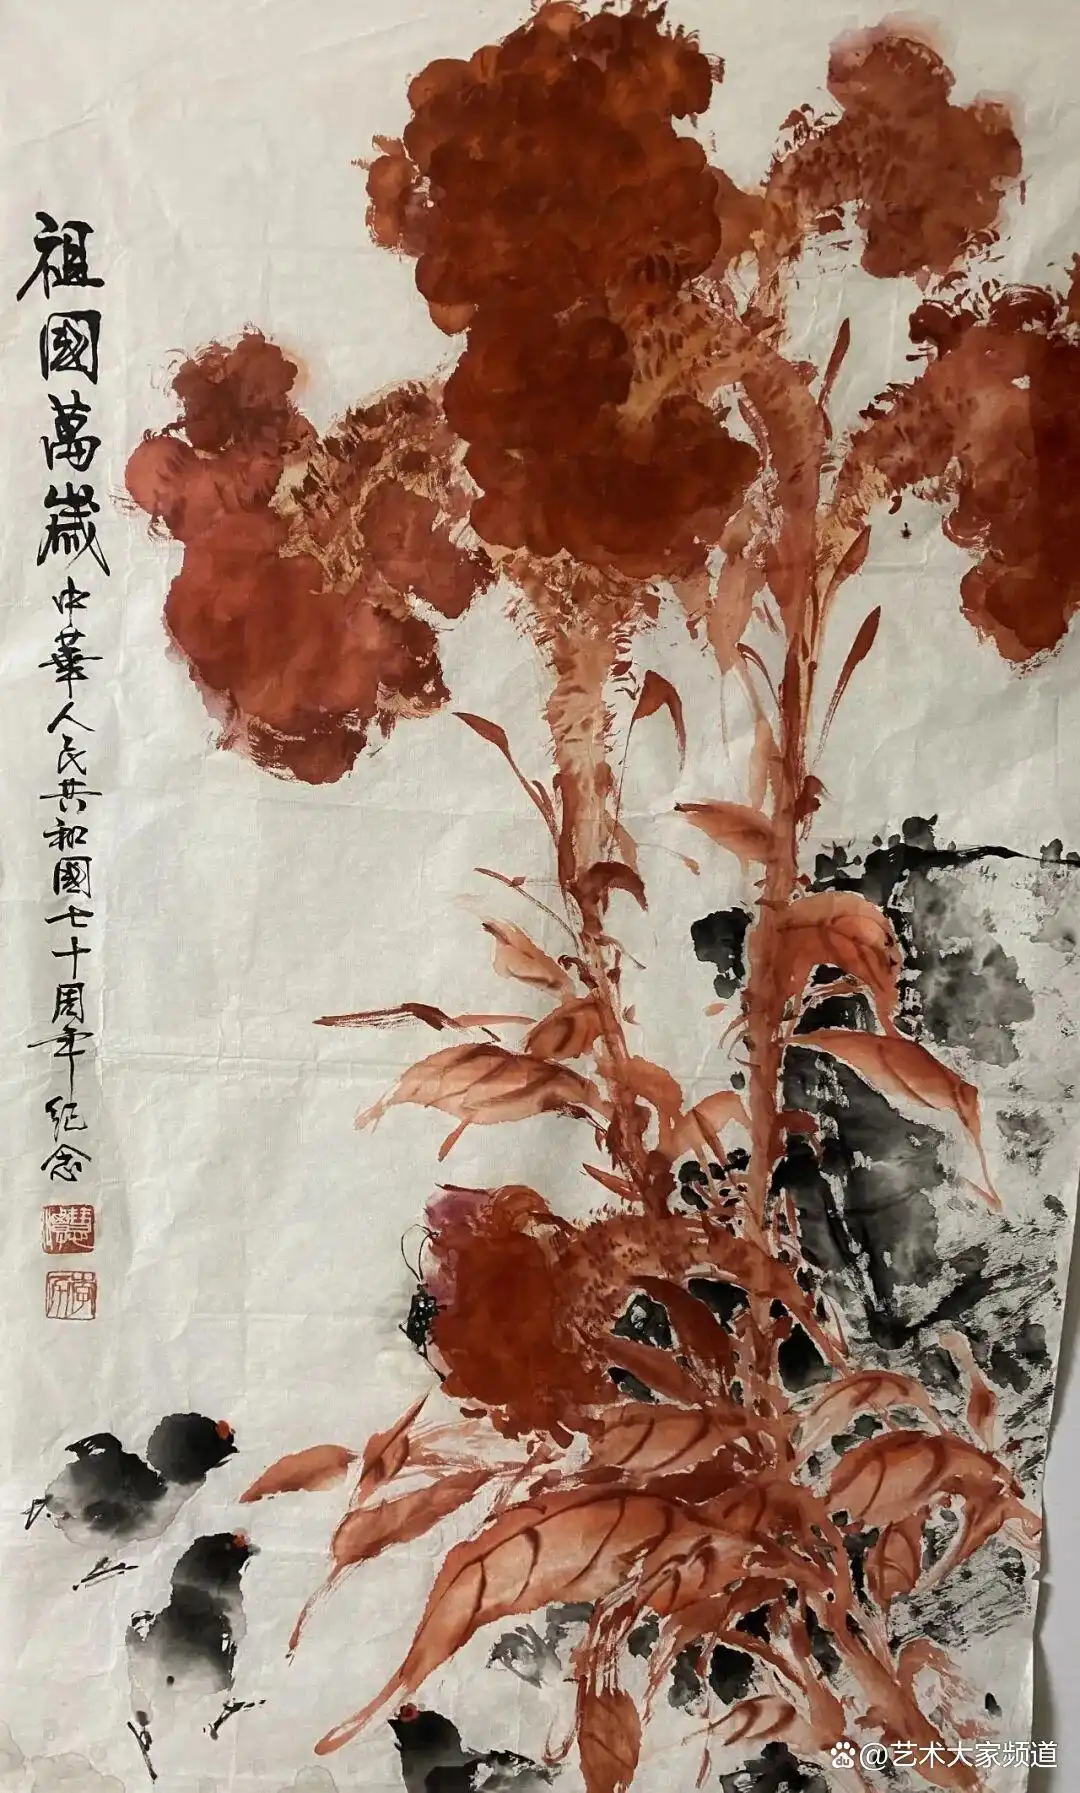 祖國萬歲中華人民共和國七十周年纪念
@艺术大家频道